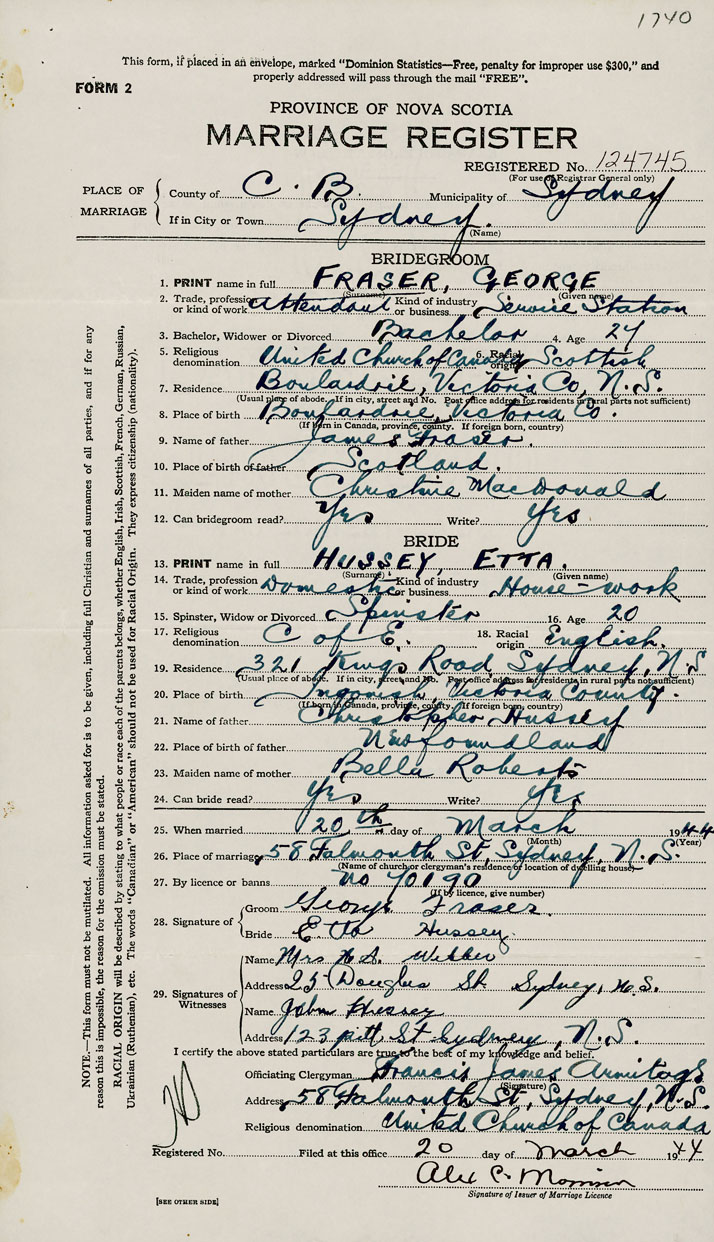 1740
This form, if placed in an envelope, marked “Dominion Statistics—Free, penalty for improper use $300,” and
properly addressed will pass through the mail “FREE”.
FORM 2
PROVINCE OF NOVA SCOTIA
MARRIAGE REGISTER
REGISTERED No. 124745
(For use of Registrar General only)
PLACE OF MARRIAGE
County of C. B. Municipality of Sydney
If in City or Town Sydney.
(Name)
BRIDEGROOM
1. PRINT name in full FRASER, GEORGE
(Surname) (Given name)
2. Trade, profession or kind of work Attendant Kind of industry or business. Service Station
3. Bachelor, Widower or Divorced Bachelor 4. Age 24
5. Religious denomination United Church of Canada 6. Racial origin Scottish
7. Residence Boulardrie, Victoria Co, N.S.
(Usual place of abode. If in city, street and No. Post office address for residents in rural parts not sufficient)
8. Place of birth Boulardrie, Victoria Co.
(If born in Canada, province, county. If foreign born, country)
9. Name of father James Fraser.
10. Place of birth of father Scotland.
11. Maiden name of mother Christine MacDonald
12. Can bridegroom read? Yes Write? Yes
BRIDE
13. PRINT name in full HUSSEY, ETTA.
(Surname) (Given name)
14. Trade, profession or kind of work Domestic Kind of industry or business. House-work
15. Spinster, Widow or Divorced Spinster 16. Age 20
17. Religious denomination C of E. 18. Racial origin English.
19. Residence 321 Kings Road, Sydney, N.S
(Usual place of abode. If in city, street and No. Post office address for residents in rural parts not sufficient)
20. Place of birth Ingonish, Victoria County.
(If born in Canada, province, county. If foreign born, country)
21. Name of father Christopher Hussey
22. Place of birth of father Newfoundland
23. Maiden name of mother Bella Roberts
24. Can bride read? Yes Write? Yes
25. When married 20th day of March 1944
(Month) (Year)
26. Place of marriage 58 Falmouth St, Sydney, N.S.
(Name of church or clergyman's residence or location of dwelling house)
27. By licence or banns no 70190
(If by licence, give number)
28. Signature of
Groom George Fraser.
Bride Etta Hussey.
29. Signatures of Witnesses
Name Mrs Webber
Address 25 Douglas St Sydney, N.S.
Name John Hussey
Address 123 pitt St Sydney, N.S.
I certify the above stated particulars are true to the best of my knowledge and belief.
Officiating Clergyman Francis James Armitage
(Signature)
Address 58 Falmouth St, Sydney, N.S.
Religious denomination United Church of Canada
Registered No. Filed at this office 20 day of March 1944
Alex C. Morrison
Signature of Issuer of Marriage Licence
[SEE OTHER SIDE]
NOTE.—This form must not be mutilated. All information asked for is to be given, including full Christian and surnames of all parties, and if for any
reason this is impossible, the reason for the omission must be stated.
RACIAL ORIGIN will be described by stating to what people or race each of the parents belongs, whether English, Irish, Scottish, French, German, Russian,
Ukrainian (Ruthenian), etc. The words “Canadian” or “American” should not be used for Racial Origin. They express citizenship (nationality).